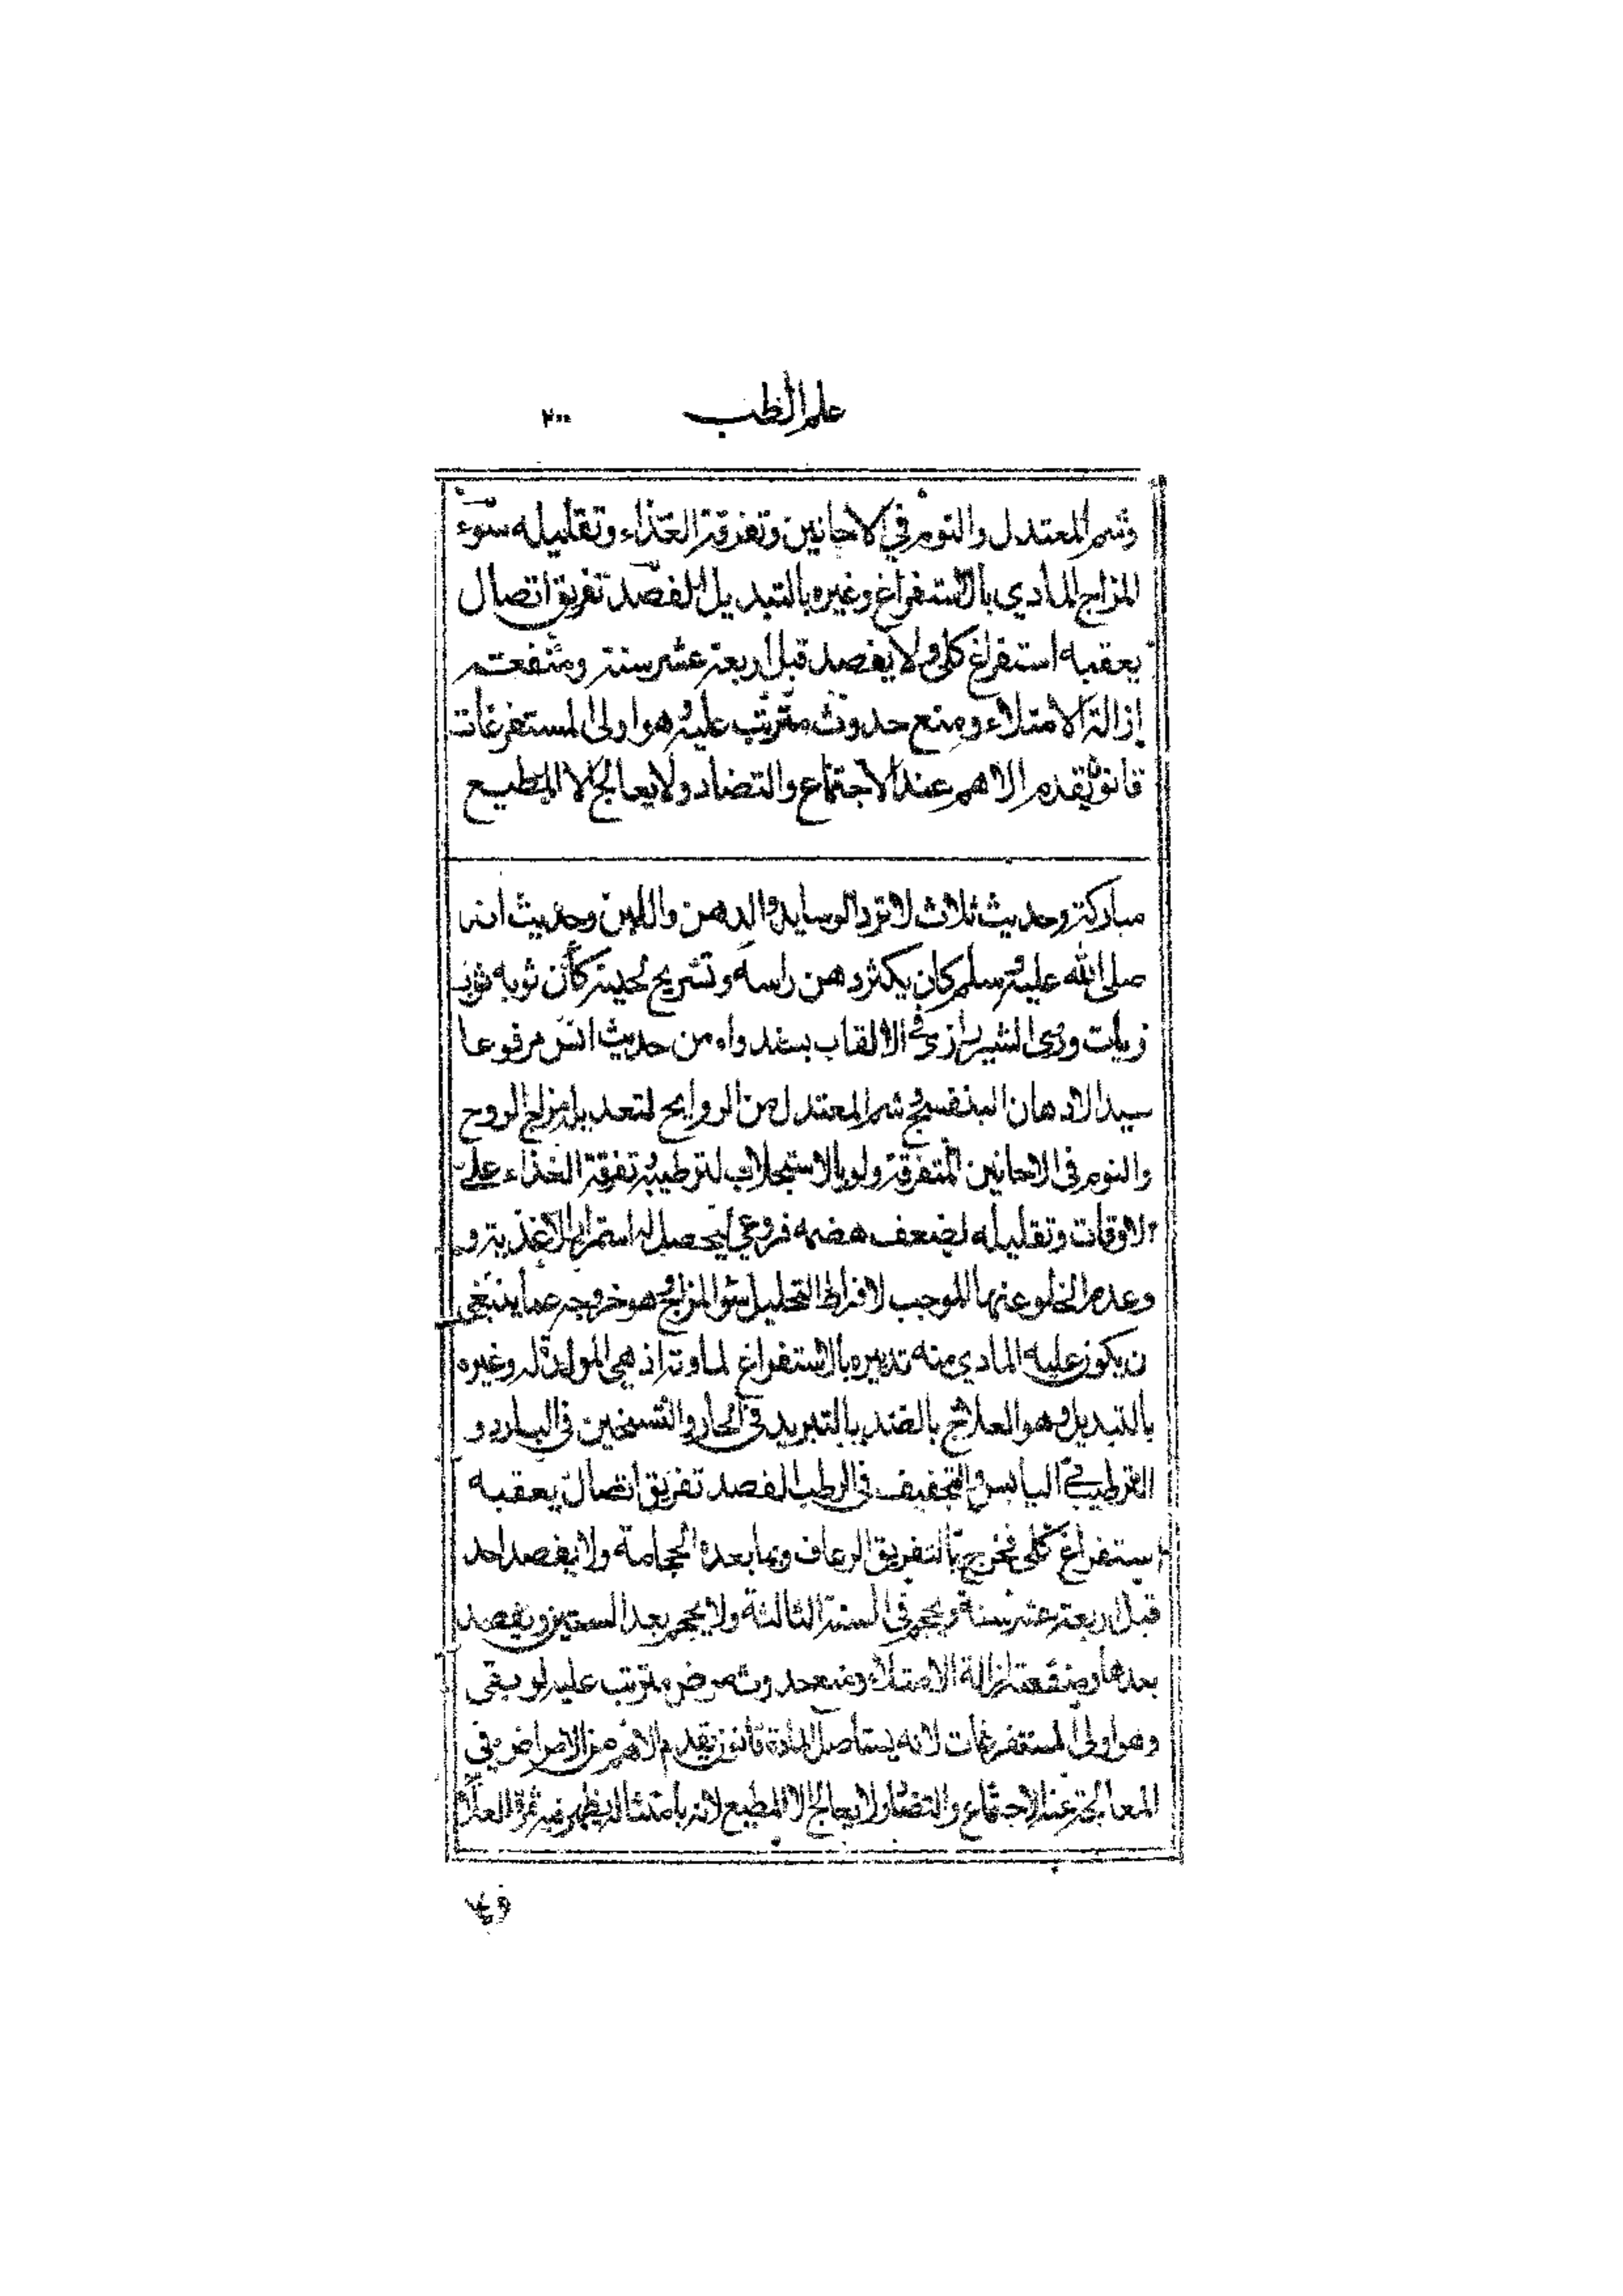 علم الطب ٢٠٠
وشم المعتدل والنوم في الاحانين وتفرقة الغذاء وتقليله سوء
المزاج المادي بالاستفراغ وغيره بالتبديل الفصد تفريق اتصال
يعقبه استفراغ كلي ولا يفصد قبل اربعة عشر سنة ومنفعته
ازالة الامتلاء ومنع حدوث مترتب عليه وهو اولى المستفرغات
قانون يقدم الاهم عند الاجتماع والتضاد ولا يعالج الا المطيع
مباركة وحديث ثلاث لا ترد الوسايد والدهن واللبن وحديث انه
صلى الله عليه وسلم كان يكثر دهن راسه وتسريح لحيته كأن ثوبه ثوب
زيات وروى الشيرازي في الالقاب بسند واه من حديث انس مرفوعا
سيد الادهان البنفسج وشم المعتدل من الروايح لتعديل مزاج الروح
والنوم في الاحانين المتفرقة ولو بالاستجلاب لترطيبه وتفرقة الغذاء على
الاوقات وتقليله لضعف هضمه فروعي ليحصل له استمرار الاغذية و
وعدم الخلو عنها الموجب لافراط التحليل سوء المزاج وهو خروجه عما ينبغي
ن يكون عليه المادي منه تدبيره بالاستفراغ لمادته اذ هي المولدة له وغيره
بالتبديل وهو العلاج بالضد بالتبريد في الحار والتسخين في البارد و
الترطيب في اليابس والتجفيف في الرطب الفصد تفريق اتصال يعقبه
استفراغ كلي فخرج بالتفريق الرعاف وبما بعده الحجامة ولا يفصد احد
قبل اربعة عشر سنة ويحجم في السنة الثالثة ولا يحجم بعد الستين ويفصد
بعدها ومنفعته ازالة الامتلاء ومنع حدوث مرض مترتب عليه لو بقي
وهو اولى المستفرغات لانه يستأصل المادة قانون يقدم الاهم من الامراض في
المعالجة عند الاجتماع والتضاد ولا يعالج الا المطيع لانه بامتثاله يظهر فيه ثمرة العلاج